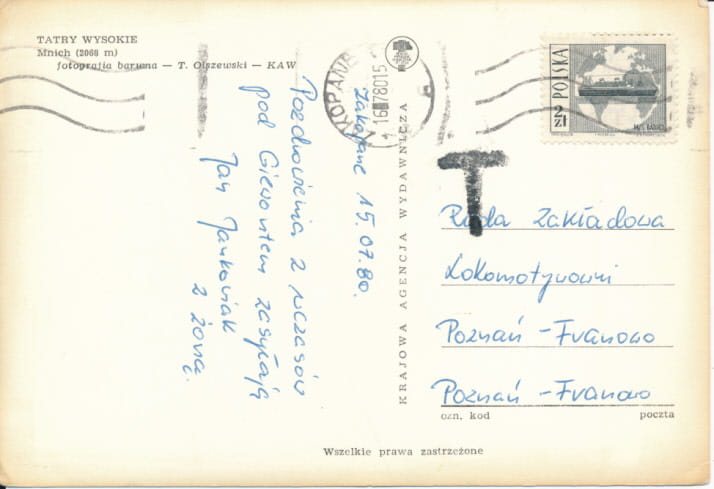 TATRY WYSOKIE
Mnich (2068 m)
fotografia barwna — T. Olszewski — KAW
Zakopane 15.07.80.
Pozdrowienia z wczasów
pod Giewontem zasyłają
Jan Jankowiak
z żoną.
KRAJOWA AGENCJA WYDAWNICZA
ZAKOPANE
16.780 15
POLSKA
2 ZŁ
T
Rada Zakładowa
Lokomotywowni
Poznań - Franowo
Poznań - Franowo
ozn. kod poczta
Wszelkie prawa zastrzeżone